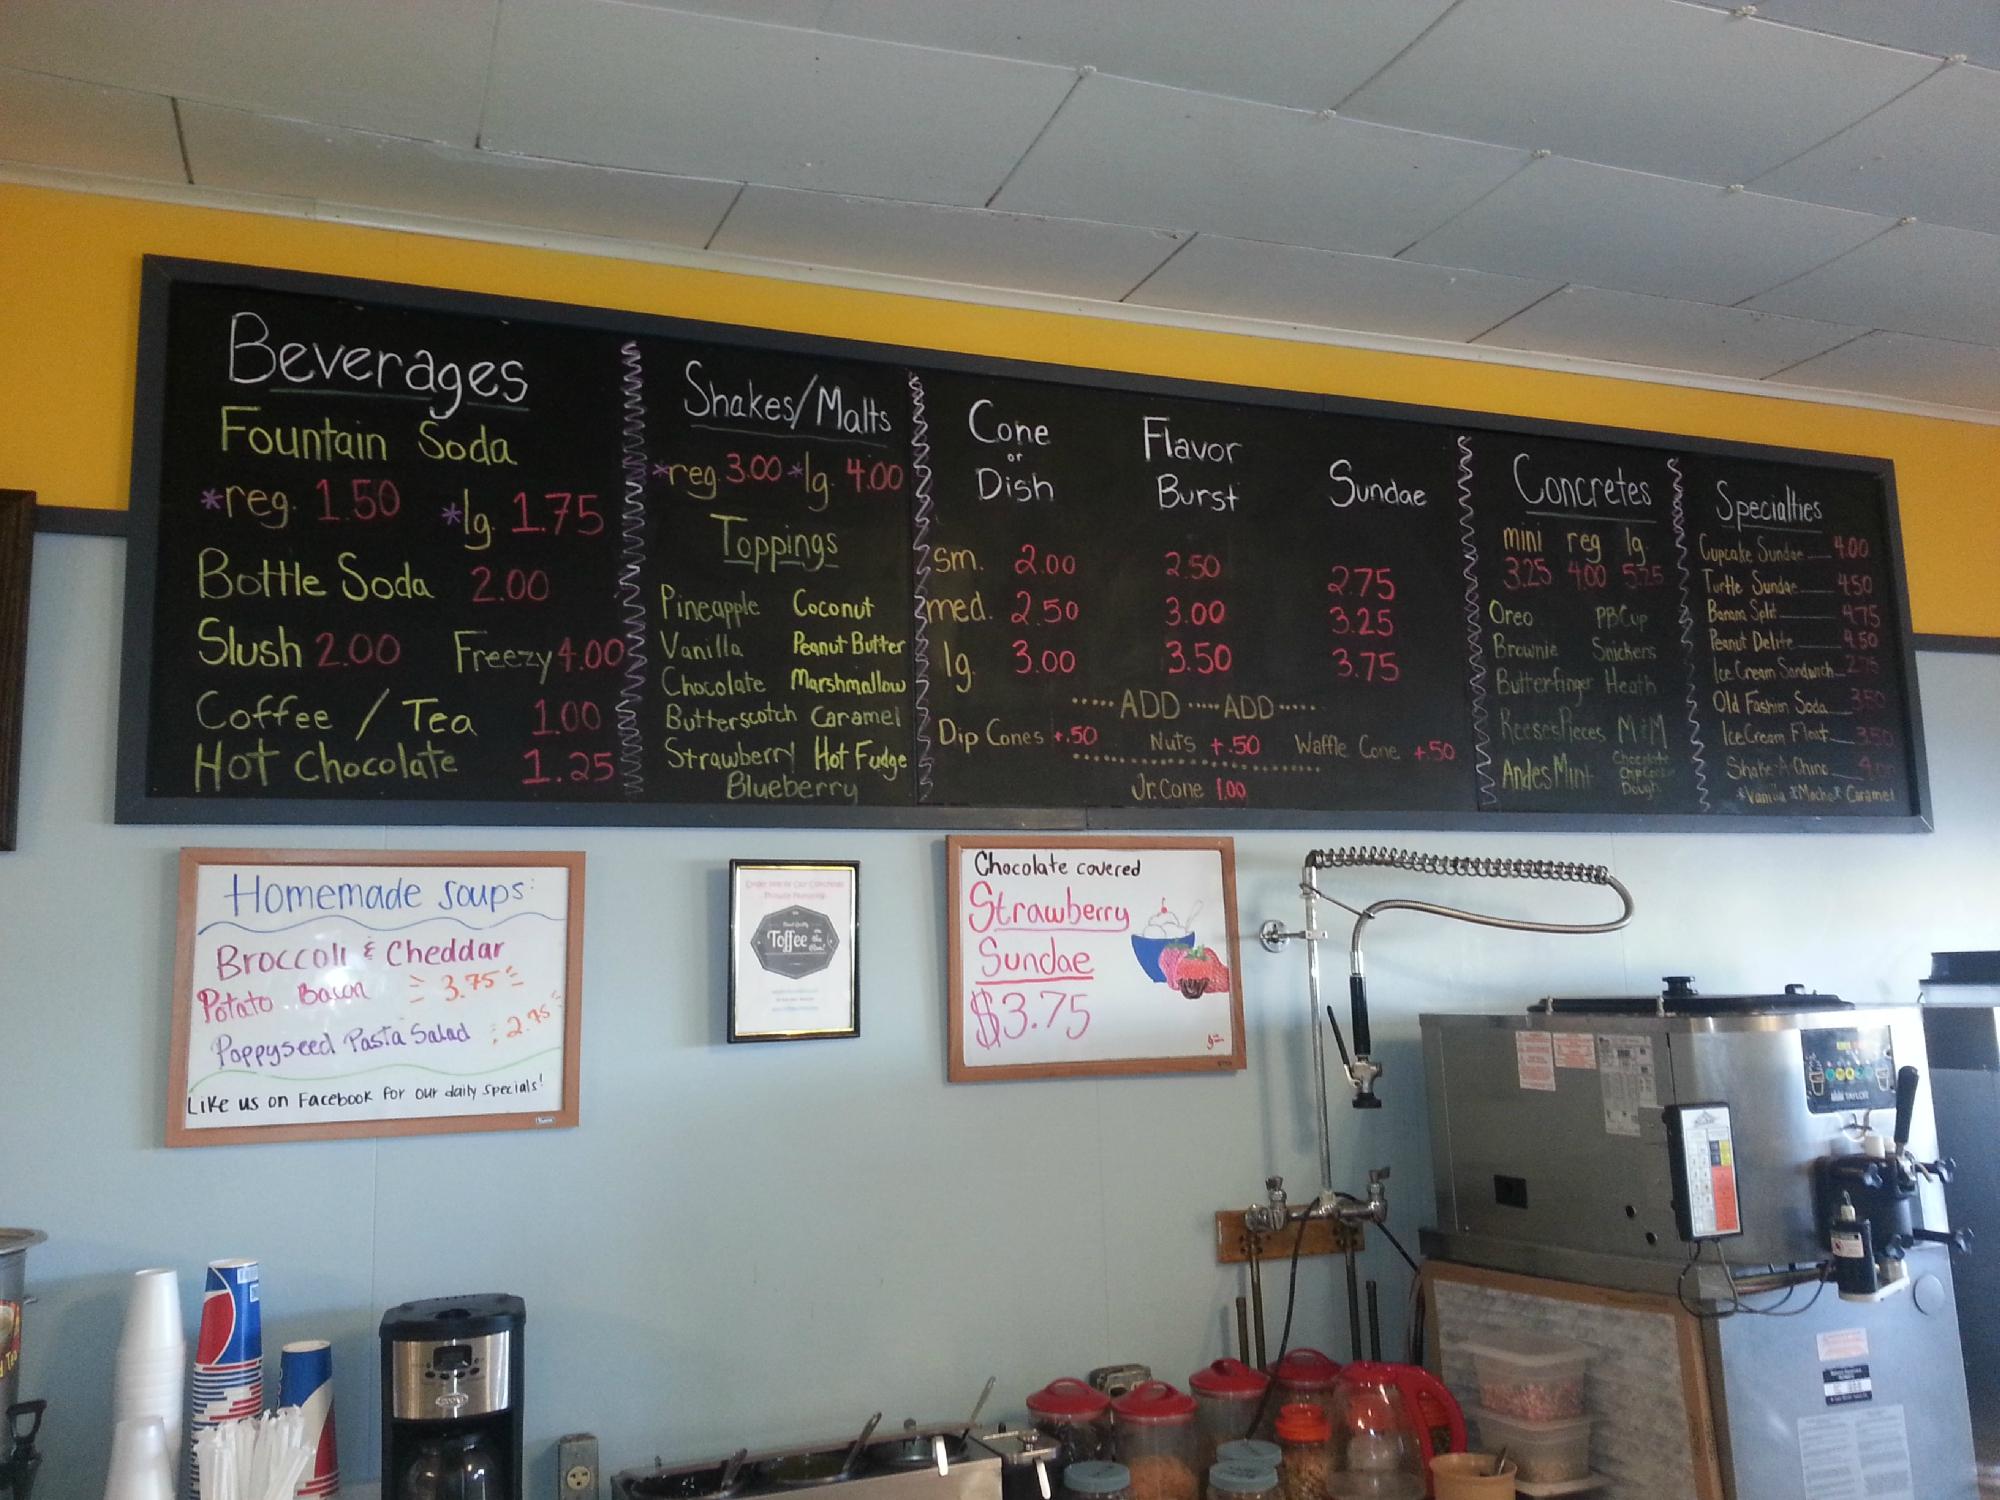 Beverages
Fountain Soda
*reg. 1.50 *lg. 1.75
Bottle Soda 2.00
Slush 2.00 Freezy 4.00
Coffee / Tea 1.00
Hot Chocolate 1.25
Shakes/Malts
*reg. 3.00 *lg. 4.00
Toppings
Pineapple Coconut
Vanilla Peanut Butter
Chocolate Marshmallow
Butterscotch Caramel
Strawberry Hot Fudge
Blueberry
Cone or Dish Flavor Burst Sundae
sm. 2.00 2.50 2.75
med. 2.50 3.00 3.25
lg. 3.00 3.50 3.75
.....ADD.....ADD.....
Dip Cones +.50 Nuts +.50 Waffle Cone +.50
Jr. Cone 1.00
Concretes
mini reg lg.
3.25 4.00 5.25
Oreo PB Cup
Brownie Snickers
Butterfinger Heath
Reeses Pieces M&M
Andes Mint Chocolate Chip Cookie Dough
Specialties
Cupcake Sundae 4.00
Turtle Sundae 4.50
Banana Split 4.75
Peanut Delite 4.50
Ice Cream Sandwich 2.75
Old Fashion Soda 3.50
Ice Cream Float 3.50
Shake-A-Chino
*Vanilla *Mocha* Caramel
Homemade soups:
Broccoli & Cheddar
Potato Bacon 3.75
Poppyseed Pasta Salad : 2.75
Like us on Facebook for our daily specials!
Toffee
Chocolate covered
Strawberry
Sundae
$3.75
TAYLOR